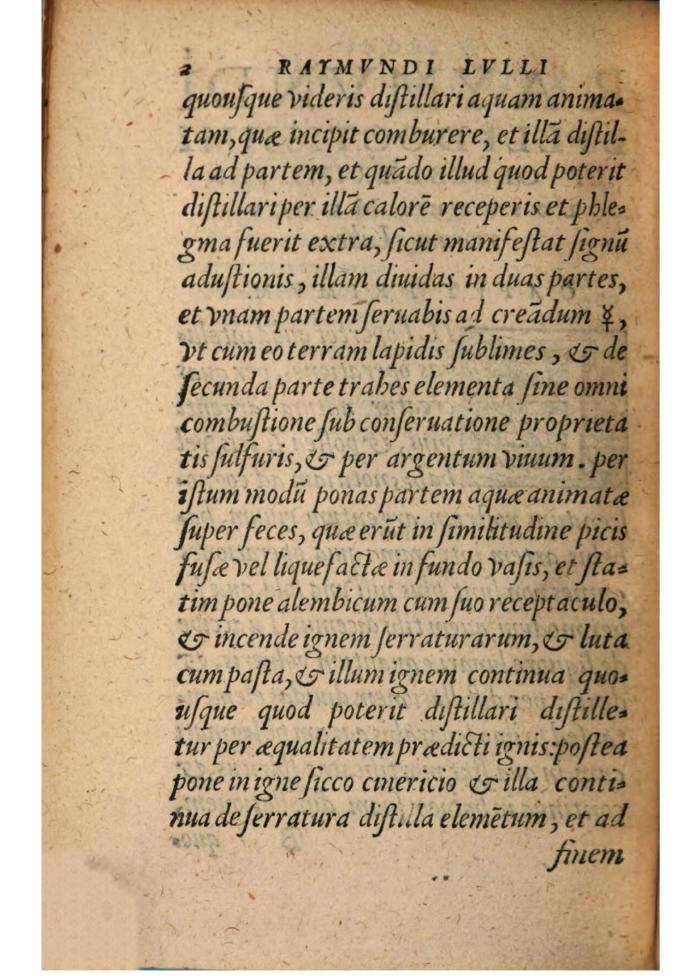 2 RAYMVNDI LVLLI
quouſque videris diſtillari aquam anima-
tam, quæ incipit comburere, et illã diſtil-
la ad partem, et quãdo illud quod poterit
diſtillari per illã calorẽ receperis et phle-
gma fuerit extra, ſicut manifeſtat ſignũ
aduſtionis, illam diuidas in duas partes,
et vnam partem ſeruabis ad creãdum ☿,
vt cum eo terram lapidis ſublimes, & de
ſecunda parte trahes elementa ſine omni
combuſtione ſub conſeruatione proprieta
tis ſulfuris, & per argentum viuum. per
iſtum modũ ponas partem aquæ animatæ
ſuper feces, quæ erũt in ſimilitudine picis
fuſæ vel liquefactæ in fundo vaſis, et ſta-
tim pone alembicum cum ſuo receptaculo,
& incende ignem ſerraturarum, & luta
cum paſta, & illum ignem continua quo-
uſque quod poterit diſtillari diſtille-
tur per æqualitatem prædicti ignis: poſtea
pone in igne ſicco cinericio & illa conti-
nua de ſerratura diſtilla elemẽtum, et ad
finem